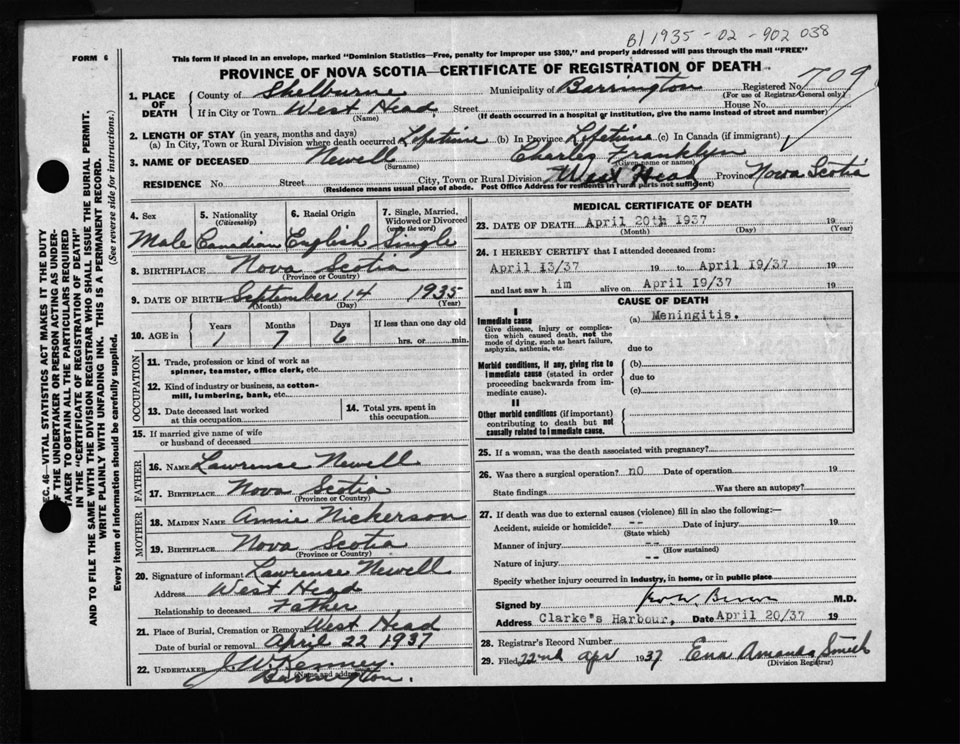 B1 1935 - 02 - 902 038
709
FORM 6
This form if placed in an envelope, marked "Dominion Statistics—Free, penalty for improper use $300," and properly addressed will pass through the mail "FREE"
PROVINCE OF NOVA SCOTIA—CERTIFICATE OF REGISTRATION OF DEATH
1. PLACE OF DEATH
County of Shelburne Municipality of Barrington Registered No.
(For use of Registrar General only)
If in City or Town West Head Street House No.
(Name) (If death occurred in a hospital or institution, give the name instead of street and number)
2. LENGTH OF STAY (in years, months and days)
(a) In City, Town or Rural Division where death occurred Lifetime (b) In Province Lifetime (c) In Canada (if immigrant)
3. NAME OF DECEASED Newell Charles Franklyn
(Surname) (Given name or names)
RESIDENCE No. Street City, Town or Rural Division West Head Province Nova Scotia
(Residence means usual place of abode. Post Office Address for residents in rural parts not sufficient)
4. Sex 5. Nationality (Citizenship) 6. Racial Origin 7. Single, Married, Widowed or Divorced (write the word)
Male Canadian English Single
8. BIRTHPLACE Nova Scotia
(Province or Country)
9. DATE OF BIRTH September 14 1935
(Month) (Day) (Year)
10. AGE in Years Months Days If less than one day old
1 7 6 hrs. or min.
OCCUPATION
11. Trade, profession or kind of work as spinner, teamster, office clerk, etc.
12. Kind of industry or business, as cotton-mill, lumbering, bank, etc.
13. Date deceased last worked at this occupation
14. Total yrs. spent in this occupation
15. If married give name of wife or husband of deceased
FATHER
16. NAME Lawrense Newell
17. BIRTHPLACE Nova Scotia
(Province or Country)
MOTHER
18. MAIDEN NAME Annie Nickerson
19. BIRTHPLACE Nova Scotia
(Province or Country)
20. Signature of informant Lawrense Newell
Address West Head
Relationship to deceased Father
21. Place of Burial, Cremation or Removal West Head
Date of burial or removal April 22 1937
22. UNDERTAKER J. W. Kenney.
(Name and address)
Barrington.
MEDICAL CERTIFICATE OF DEATH
23. DATE OF DEATH April 20th 1937 19
(Month) (Day) (Year)
24. I HEREBY CERTIFY that I attended deceased from:
April 13/37 19 to April 19/37 19
and last saw h im alive on April 19/37 19
CAUSE OF DEATH
I
Immediate cause
Give disease, injury or complication which caused death, not the mode of dying, such as heart failure, asphyxia, asthenia, etc.
(a) Meningitis.
due to
Morbid conditions, if any, giving rise to immediate cause (stated in order proceeding backwards from immediate cause).
(b)
due to
(c)
II
Other morbid conditions (if important) contributing to death but not causally related to immediate cause.
25. If a woman, was the death associated with pregnancy?
26. Was there a surgical operation? no Date of operation 19
State findings Was there an autopsy?
27. If death was due to external causes (violence) fill in also the following:—
Accident, suicide or homicide? -- Date of injury 19
(State which)
Manner of injury --
(How sustained)
Nature of injury --
Specify whether injury occurred in industry, in home, or in public place
Signed by M.D.
Address Clarke's Harbour, Date April 20/37
28. Registrar's Record Number
29. Filed 22nd Apr 1937 Amanda Smith
(Division Registrar)
SEC. 46—VITAL STATISTICS ACT MAKES IT THE DUTY
OF THE UNDERTAKER OR PERSON ACTING AS UNDER-
TAKER TO OBTAIN ALL THE PARTICULARS REQUIRED
IN THE "CERTIFICATE OF REGISTRATION OF DEATH"
AND TO FILE THE SAME WITH THE DIVISION REGISTRAR WHO SHALL ISSUE THE BURIAL PERMIT.
WRITE PLAINLY WITH UNFADING INK. THIS IS A PERMANENT RECORD.
Every item of information should be carefully supplied. (See reverse side for instructions.)